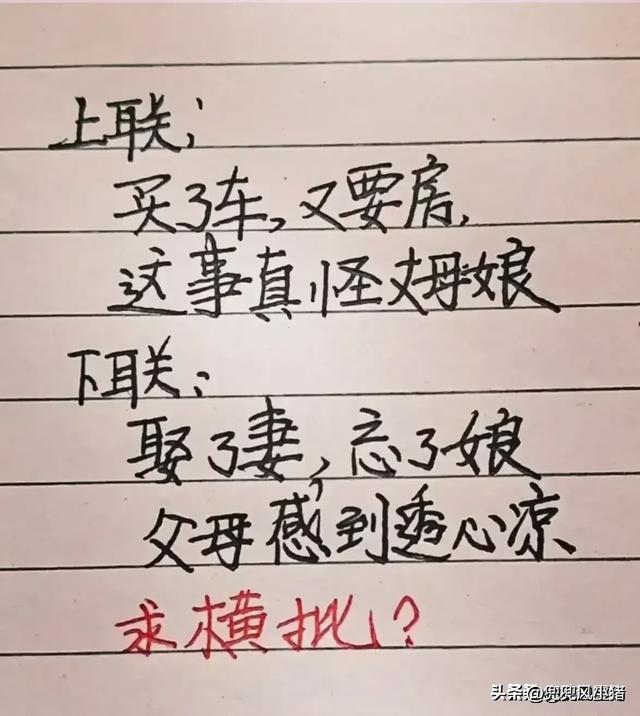 上联：
买了车，又要房，
这事真怪丈母娘
下联：
娶了妻，忘了娘
父母感到透心凉
求横批？